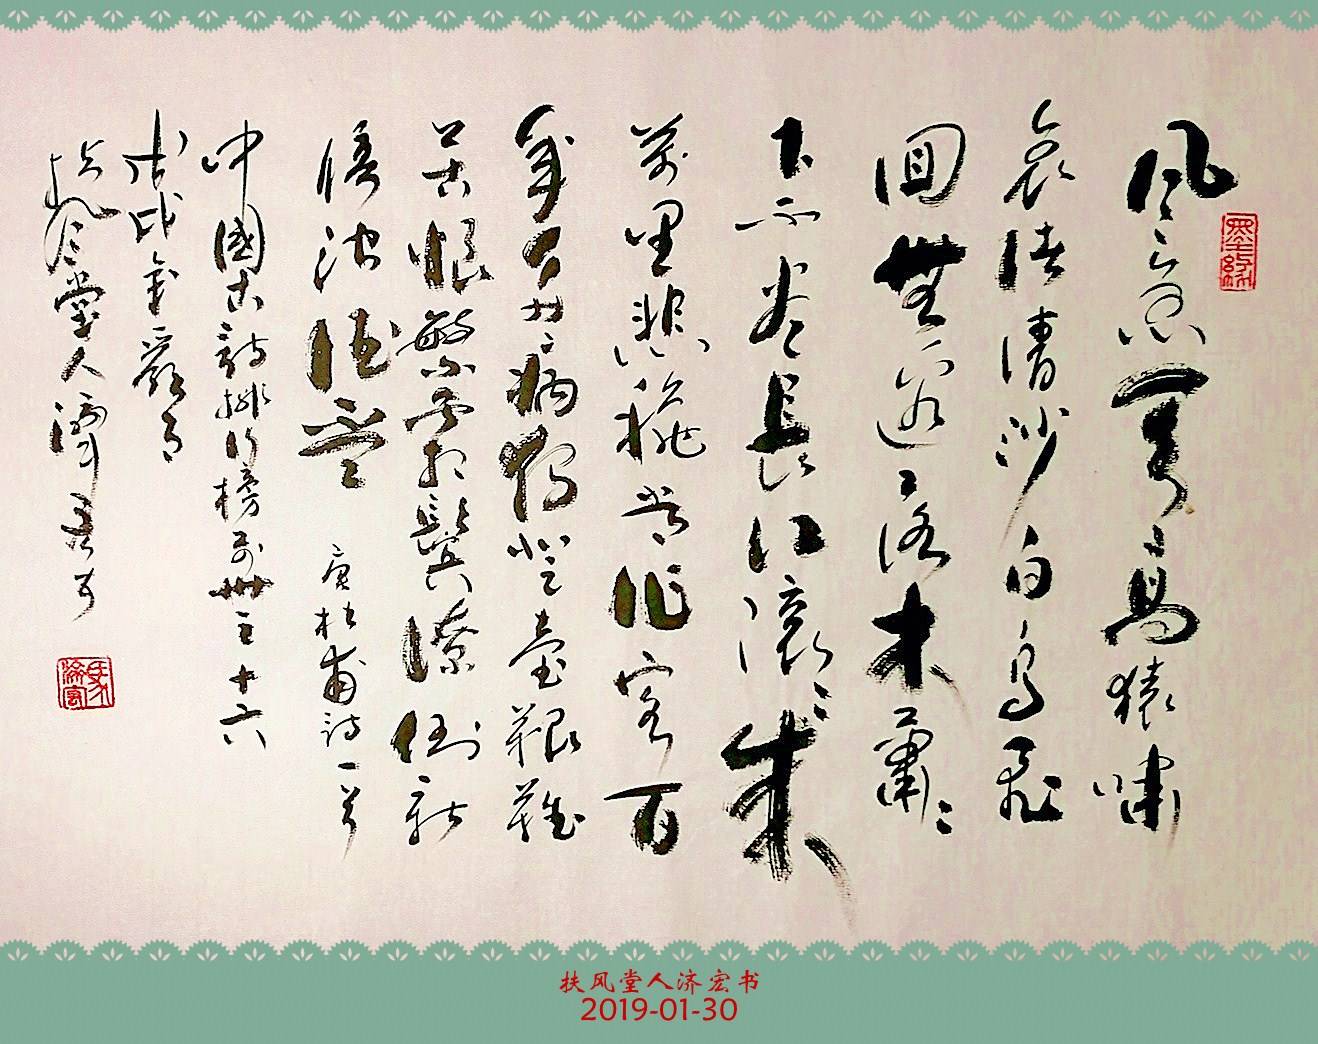 墨緣
风急天高猿啸
哀渚清沙白鸟飛
回無边落木蕭〻
下不尽長江滚〻来
萬里悲秋常作客百
年多病独登臺艱難
苦恨繁霜鬓潦倒新
停浊酒杯 唐杜甫詩一首
中國古詩排行榜前卅之十六
戊戌年 月
扶風堂人濟宏书
扶风堂人济宏书
2019-01-30